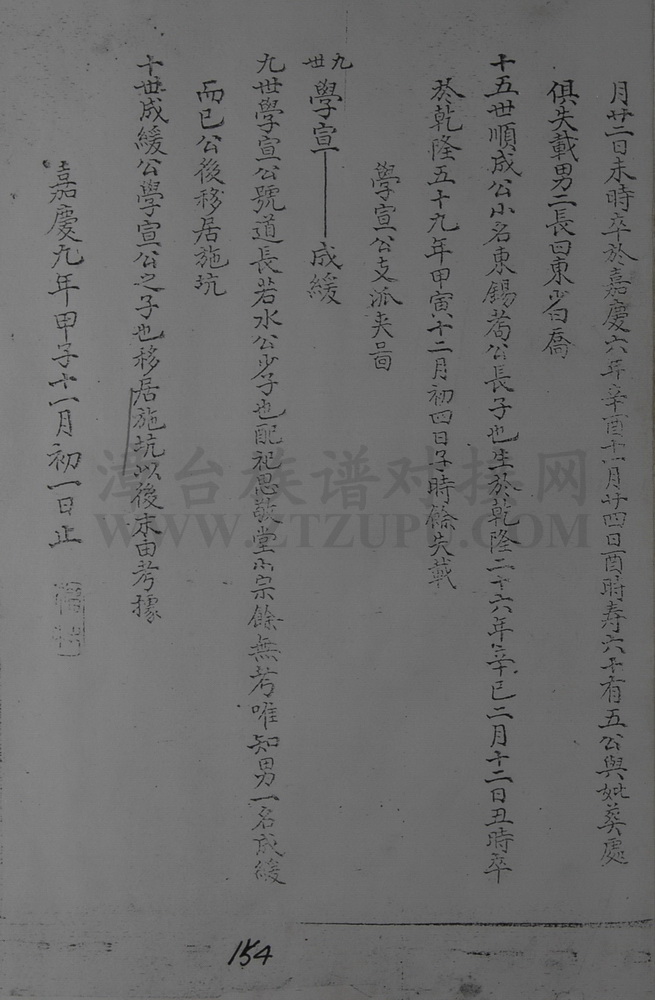 月廿二日未時卒於嘉慶六年辛酉十一月廿四日酉時寿六十有五公與妣葬處
俱失載男二長曰東少曰喬
十五世順成公小名東錫喬公長子也生於乾隆二十六年辛巳二月十二日丑時卒
於乾隆五十九年甲寅十二月初四日子時餘失載
學宣公支派夹啚
九世 學宣——成緩
九世學宣公號道長若水公少子也配祀思敬堂小宗餘無考唯知男一名成緩
而已公後移居施坑
十世成緩公學宣公之子也移居施坑以後末由考據
嘉慶九年甲子十一月初一日止
漳台族谱对接网
WWW.ZTZUPU.COM
154